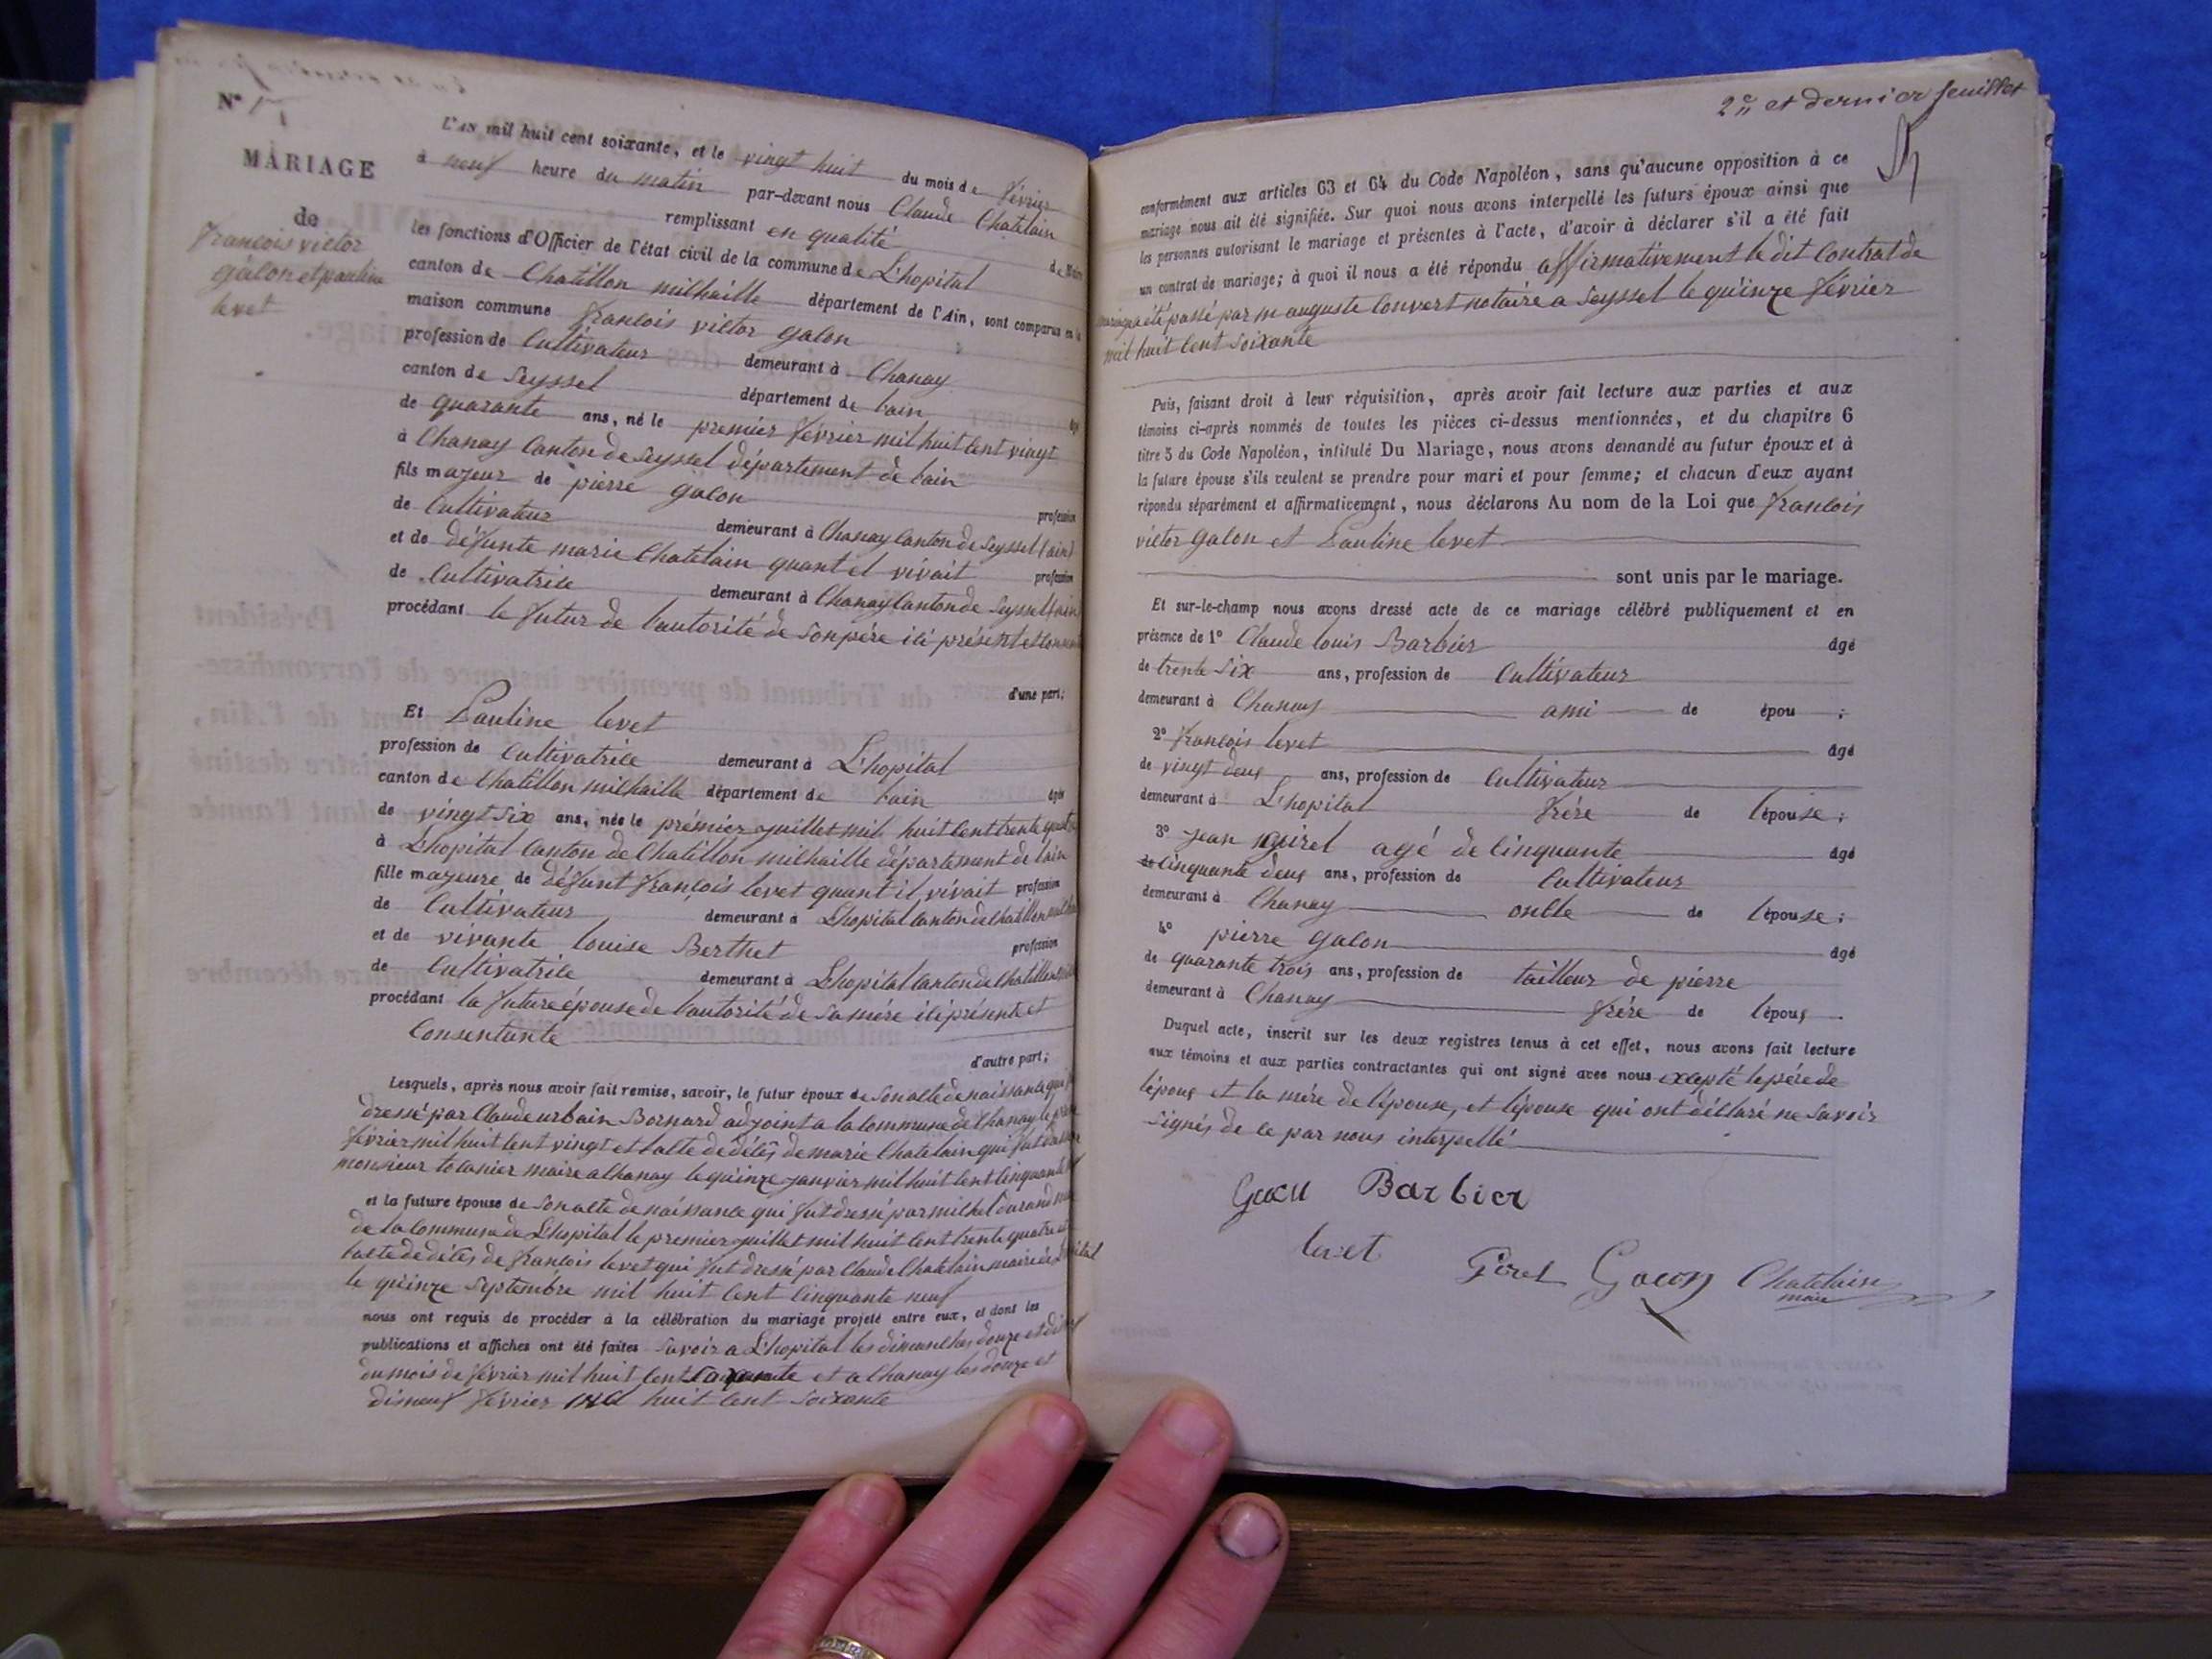 N°
MARIAGE
de
francois victor
galon et pauline
levet
L'AN mil huit cent soixante, et le vingt huit du mois de février
à neuf heure du matin par-devant nous Claude Chatelain
remplissant en qualité de Maire
les fonctions d'Officier de l'état civil de la commune de L'hopital
canton de Chatillon milhaille département de l'Ain, sont comparus en la
maison commune françois victor galon
profession de Cultivateur demeurant à Chanay
canton de Seyssel département de l'ain agé
de quarante ans, né le premier février mil huit cent vingt
à Chanay Canton de Seyssel département de l'ain
fils majeur de pierre galon profession
de Cultivateur demeurant à Chanay Canton de Seyssel (ain)
et de défunte marie Chatelain quant el vivait profession
de Cultivatrice demeurant à Chanay Canton de Seyssel (ain)
procédant le futur de l'autorité de son père ici présent et
d'une part;
Et Pauline levet
profession de Cultivatrice demeurant à L'hopital
canton de Chatillon milhaille département de l'ain agée
de vingt six ans, née le prémier juillet mil huit cent trente quatre
à L'hopital Canton de Chatillon milhaille département de l'ain
fille majeure de défunt françois levet quant il vivait profession
de Cultivateur demeurant à L'hopital Canton de Chatillon
et de vivante louise Berthet profession
de Cultivatrice demeurant à L'hopital Canton de Chatillon
procédant la future épouse de l'autorité de sa mére ici présente et
Consentante
d'autre part;
Lesquels, après nous avoir fait remise, savoir, le futur époux de son acte de naissance qui
dressé par Claude urbain Bornard adjoint a la commune de Chanay le
février mil huit cent vingt et l'acte de décès de marie Chatelain qui fut
monsieur maire a Chanay le quinze janvier mil huit cent cinquante
et la future épouse de son acte de naissance qui fut dressé par michel durand
de la commune de L'hopital le premier juillet mil huit cent trente quatre et
l'acte de décès de françois levet qui fut dressé par Claude Chatelain maire de L'hopital
le quinze Septembre mil huit cent cinquante neuf
nous ont requis de procéder à la célébration du mariage projeté entre eux, et dont les
publications et affiches ont été faites savoir a L'hopital les dimenches douze et
du mois de février mil huit cent soixante et a Chanay les douze et
disneuf février mil huit cent soixante
2e et dernier feuillet
conformément aux articles 63 et 64 du Code Napoléon, sans qu'aucune opposition à ce
mariage nous ait été signifiée. Sur quoi nous avons interpellé les futurs époux ainsi que
les personnes autorisant le mariage et présentes à l'acte, d'avoir à déclarer s'il a été fait
un contrat de mariage; à quoi il nous a été répondu affirmativement le dit Contrat de
mariage a été passé par m auguste Convert notaire a Seyssel le quinze février
mil huit cent soixante
Puis, faisant droit à leur réquisition, après avoir fait lecture aux parties et aux
témoins ci-après nommés de toutes les pièces ci-dessus mentionnées, et du chapitre 6
titre 5 du Code Napoléon, intitulé Du Mariage, nous avons demandé au futur époux et à
la future épouse s'ils veulent se prendre pour mari et pour femme; et chacun d'eux ayant
répondu séparément et affirmativement, nous déclarons Au nom de la Loi que françois
victor galon et Pauline levet
sont unis par le mariage.
Et sur-le-champ nous avons dressé acte de ce mariage célébré publiquement et en
présence de 1° Claude louis Barbier âgé
de trente six ans, profession de Cultivateur
demeurant à Chanay ami de épou ;
2° françois levet âgé
de vingt deux ans, profession de Cultivateur
demeurant à L'hopital frére de l'épouse ;
3° jean agé de Cinquante âgé
de Cinquante deux ans, profession de Cultivateur
demeurant à Chanay oncle de l'épouse ;
4° pierre galon âgé
de quarante trois ans, profession de tailleur de pierre
demeurant à Chanay frére de l'époux .
Duquel acte, inscrit sur les deux registres tenus à cet effet, nous avons fait lecture
aux témoins et aux parties contractantes qui ont signé avec nous excepté le pére de
l'époux et la mére de l'épouse, et l'épouse qui ont déclaré ne savoir
signés de ce par nous interpellé
Barbier
levet
Giret Gacon Chatelain
maire